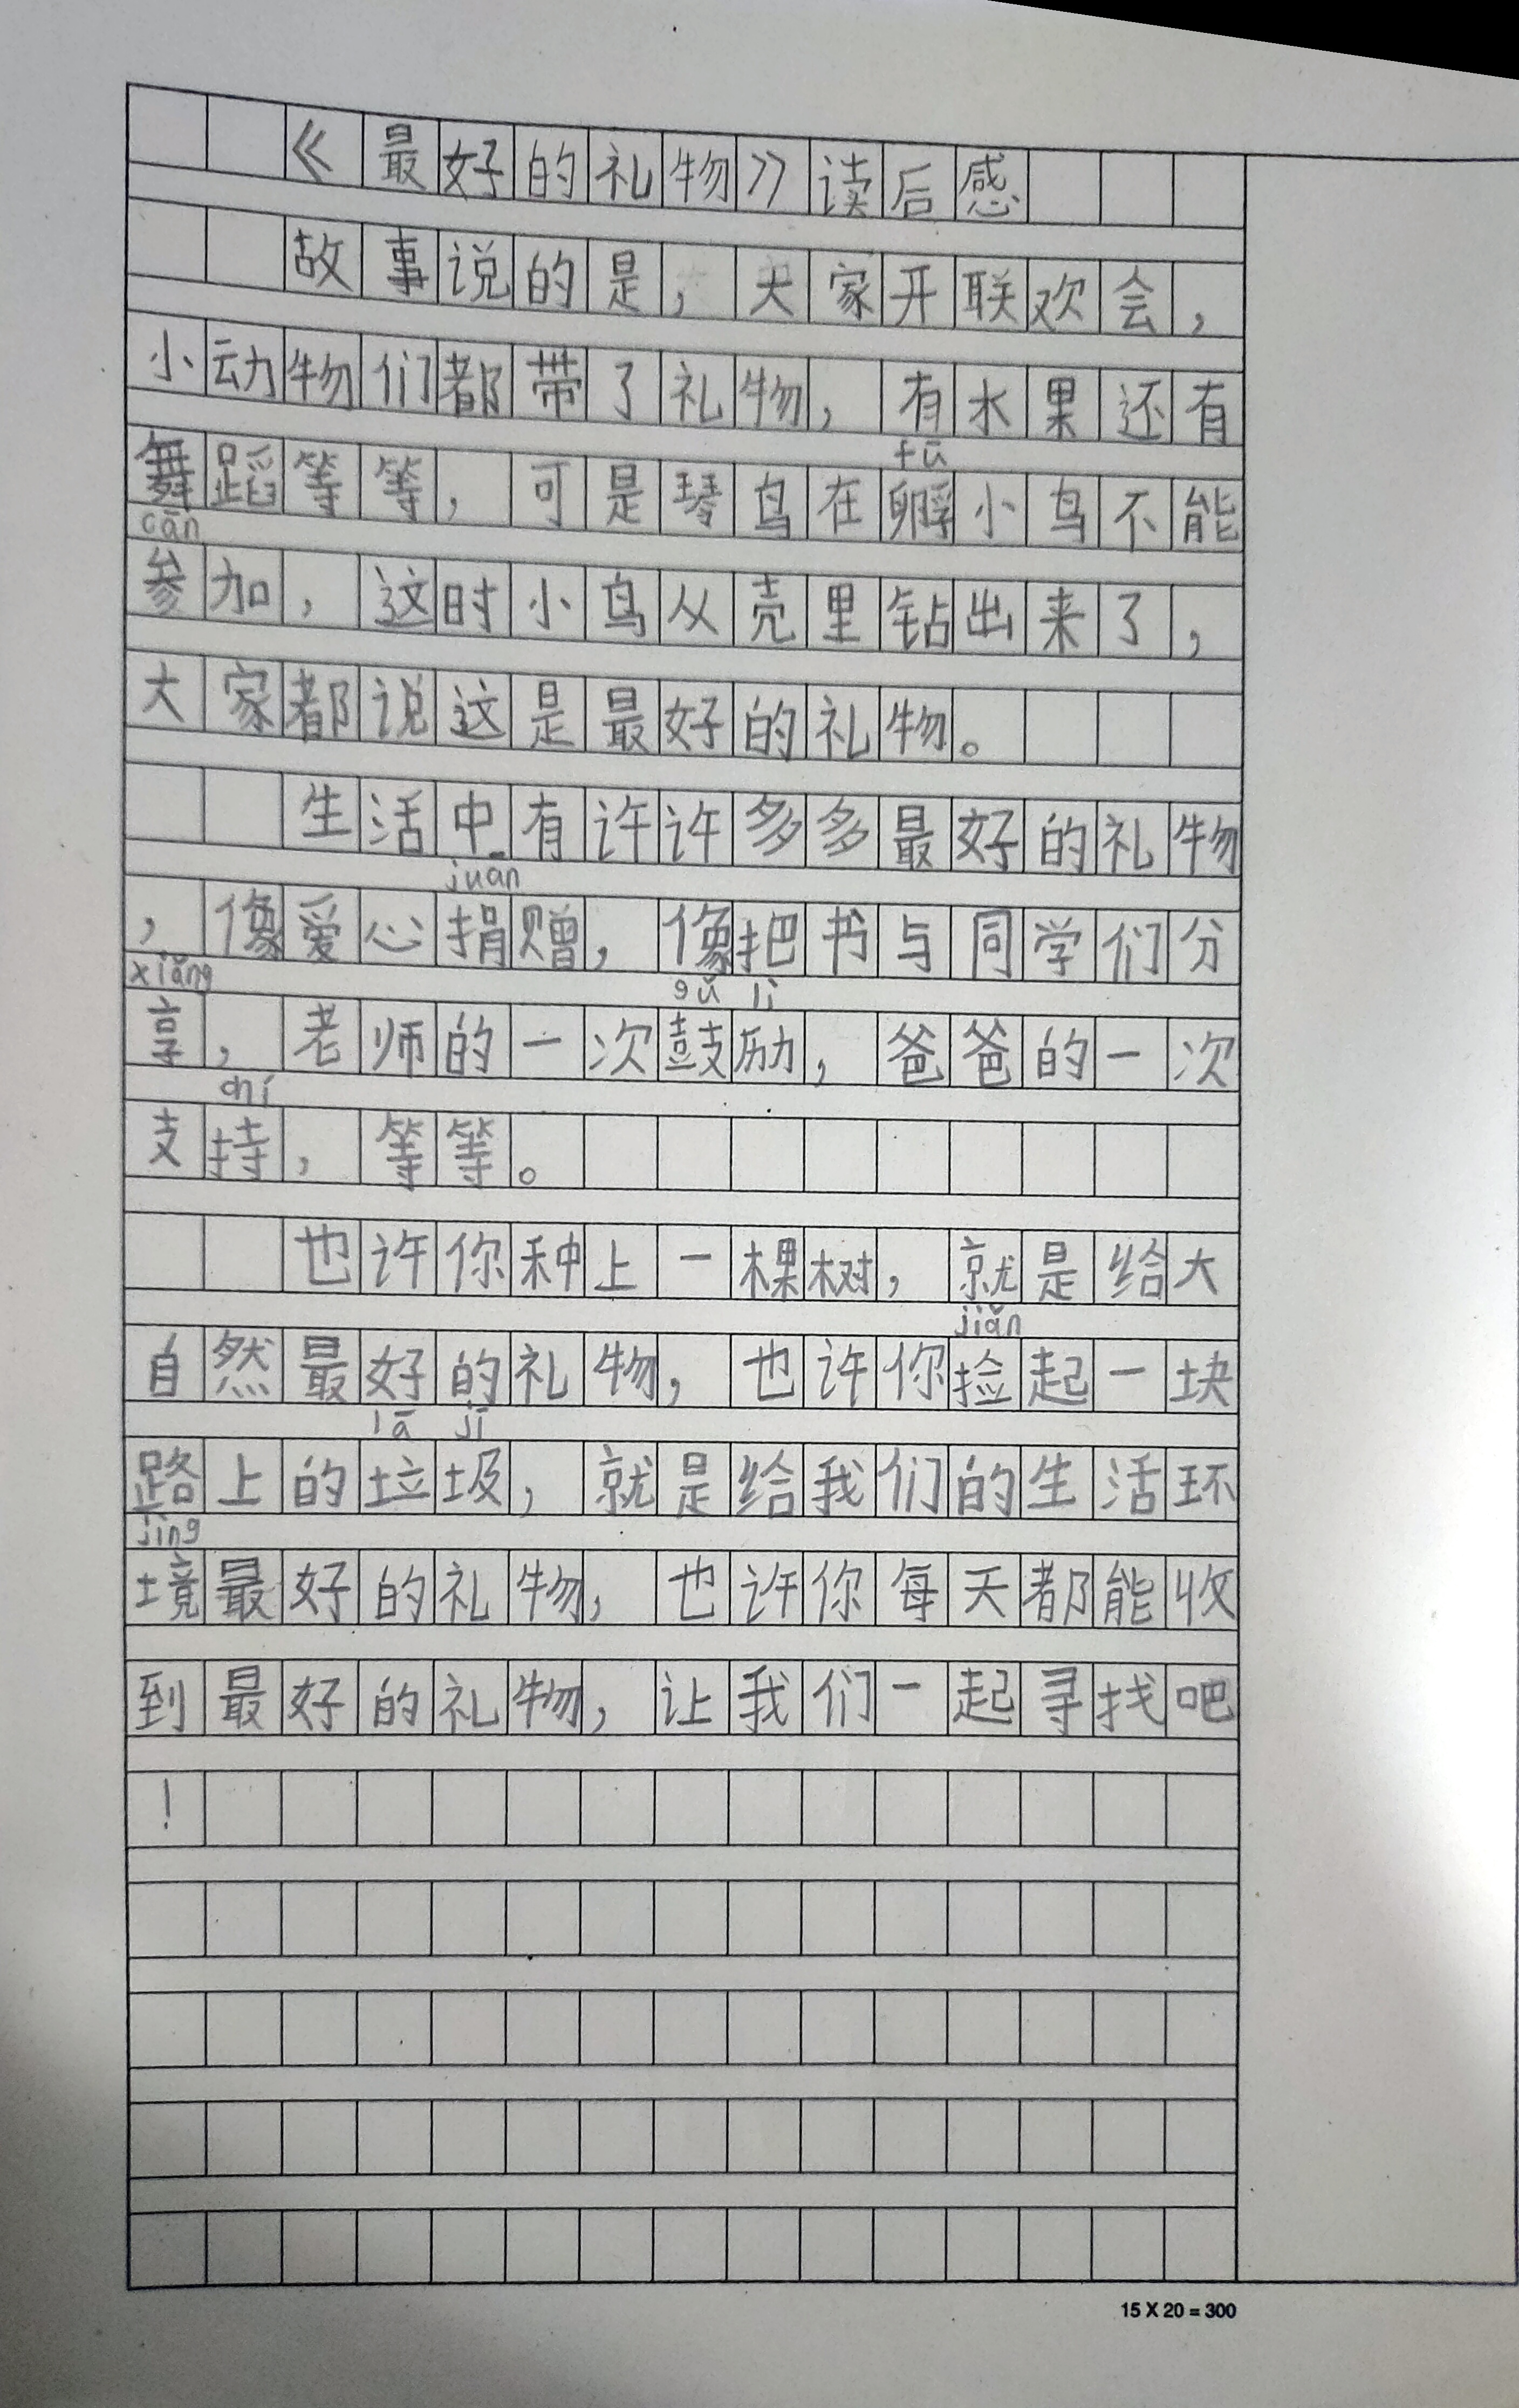 《最好的礼物》读后感
故事说的是，大家开联欢会，
小动物们都带了礼物，有水果还有
fū
舞蹈等等，可是琴鸟在孵小鸟不能
cān
参加，这时小鸟从壳里钻出来了，
大家都说这是最好的礼物。
生活中有许许多多最好的礼物
juān
，像爱心捐赠，像把书与同学们分
xiǎng gǔ lì
享，老师的一次鼓励，爸爸的一次
chí
支持，等等。
也许你种上一棵树，就是给大
jiǎn
自然最好的礼物，也许你捡起一块
lā jī
路上的垃圾，就是给我们的生活环
jìng
境最好的礼物，也许你每天都能收
到最好的礼物，让我们一起寻找吧
！
15 X 20 = 300